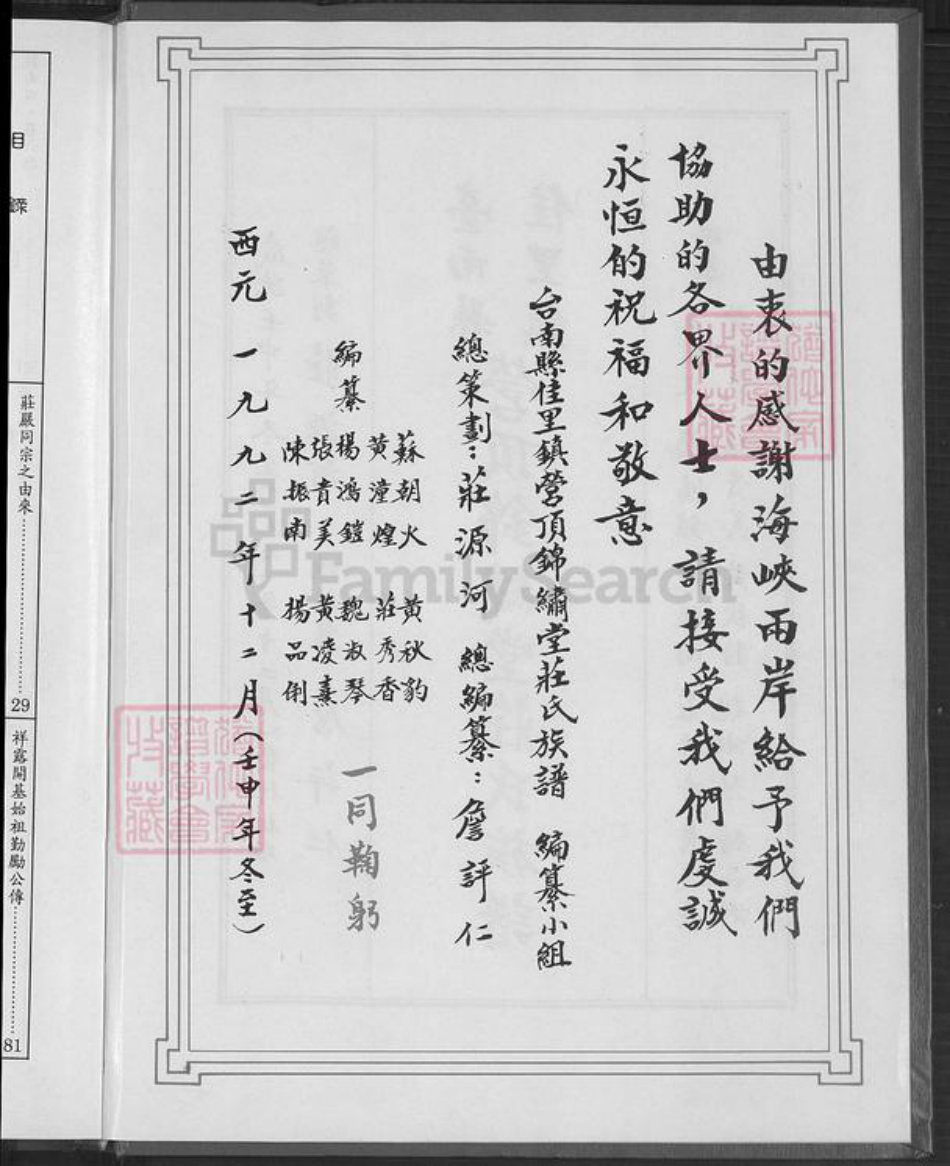 由衷的感謝海峽兩岸給予我們
協助的各界人士，請接受我們虔誠
永恒的祝福和敬意
台南縣佳里鎮營頂錦繡堂莊氏族譜 編纂小組
總策劃：莊源河 總編纂：詹評仁
編纂
蘇朝火 黃秋豹
黃潼煌 莊秀香
楊鴻鎧 魏淑琴
張貴美 黃凌熏
陳振南 楊品俐
一同鞠躬
西元 一九九二年十二月（壬申年冬至）
目錄
莊嚴同宗之由來……29
祥露開基始祖勤勵公傳……81
FamilySearch